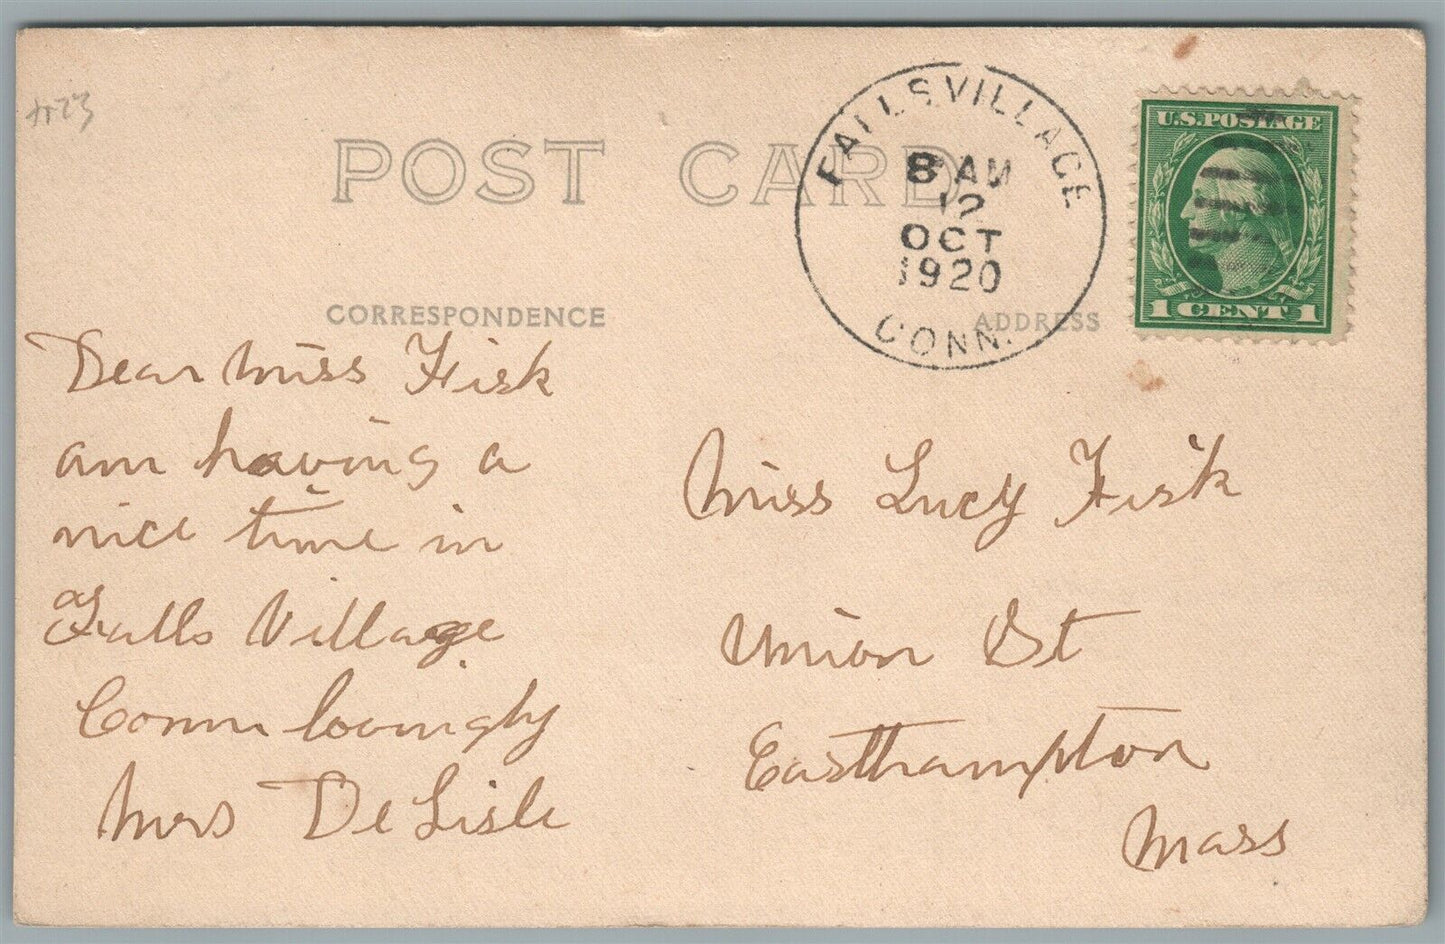 POST CARD
FALLS VILLAGE
8 AM
12
OCT
1920
CONN.
U.S. POSTAGE
1 CENT 1
CORRESPONDENCE
ADDRESS
Dear Miss Fisk
am having a
nice time in
Falls Village
Conn lovingly
Mrs DeLisle
Miss Lucy Fisk
Union St
Easthampton
Mass